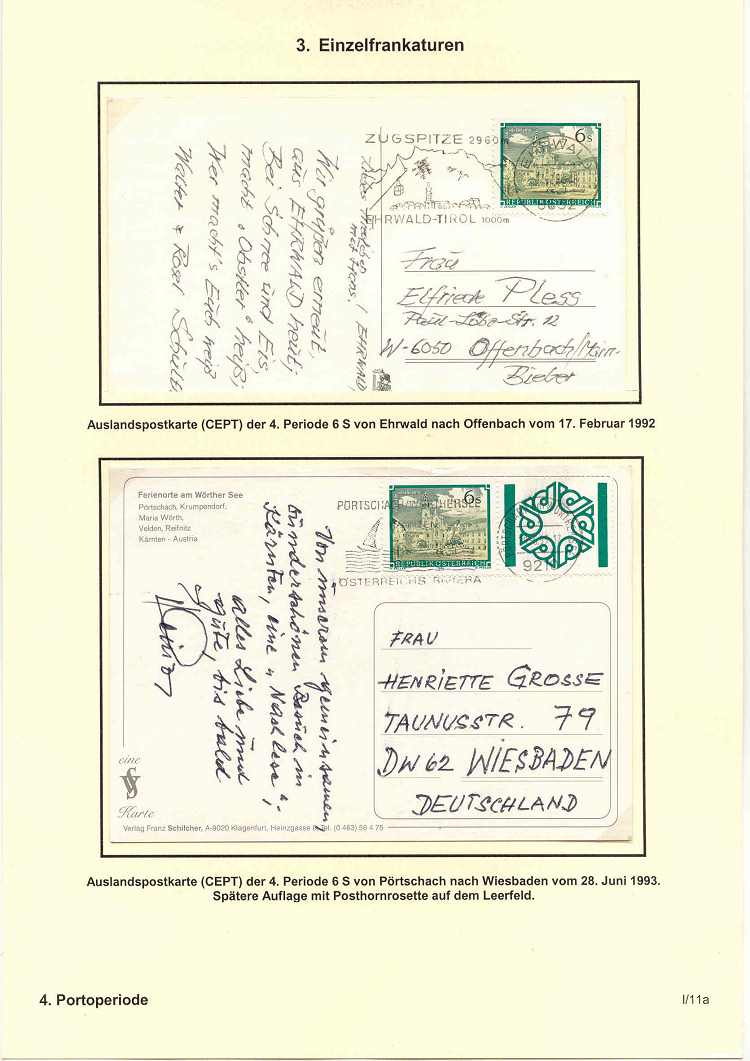 3. Einzelfrankaturen
ZUGSPITZE 2960m
EHRWALD-TIROL 1000m
EHRWALD
6632
6s
REPUBLIK ÖSTERREICH
Wir grüßen erneut,
aus EHRWALD heut;
Bei Schnee und Eis
macht "Obstler" heiß;
Wer macht's Euch weiß
Walter & Rosel Schult.
EHRWALD,
Frau
Elfriede Pless
Paul-Löbe-Str. 12
W-6050 Offenbach/Main-
Bieber
Auslandspostkarte (CEPT) der 4. Periode 6 S von Ehrwald nach Offenbach vom 17. Februar 1992
Ferienorte am Wörther See
Pörtschach, Krumpendorf,
Maria Wörth,
Velden, Reifnitz
Kärnten - Austria
PÖRTSCHACH AM WÖRTHERSEE
ÖSTERREICHS RIVIERA
6s
REPUBLIK ÖSTERREICH
9210
Von unserem gemeinsamen,
wunderschönen Besuch in
Kärnten, eine "Nachlese".
Alles Liebe und
Gute, bis bald
FRAU
HENRIETTE GROSSE
TAUNUSSTR. 79
DW62 WIESBADEN
DEUTSCHLAND
eine
Karte
Verlag Franz Schilcher, A-9020 Klagenfurt, Heinzgasse 6, Tel. (0 463) 56 4 75
Auslandspostkarte (CEPT) der 4. Periode 6 S von Pörtschach nach Wiesbaden vom 28. Juni 1993.
Spätere Auflage mit Posthornrosette auf dem Leerfeld.
4. Portoperiode
I/11a